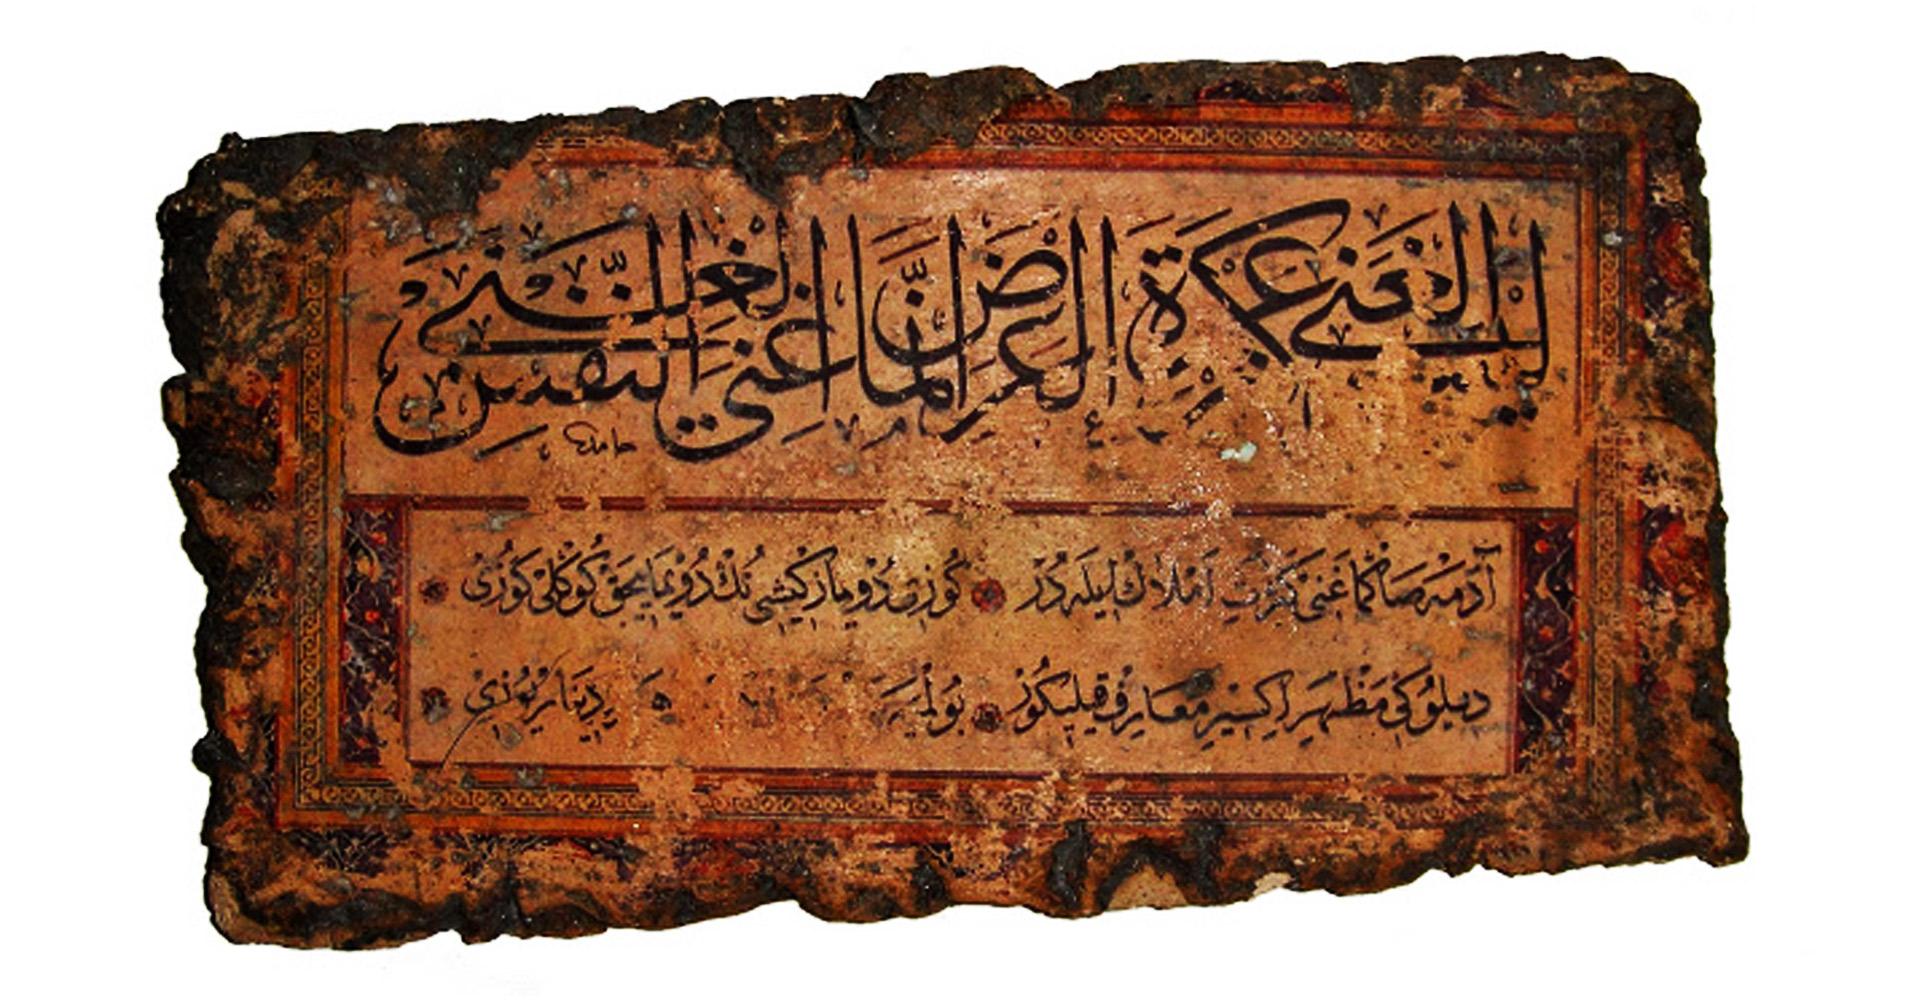 ليس الغنى عن كثرة العرض إنما الغنى غنى النفس
حامد
آدمه صانما غنى كثرت املاك ايله در كوزى دويماز كيشينك دويمايجق كوكلى كوزى
مظهر اكسير معارف بولميه دينار يوزى